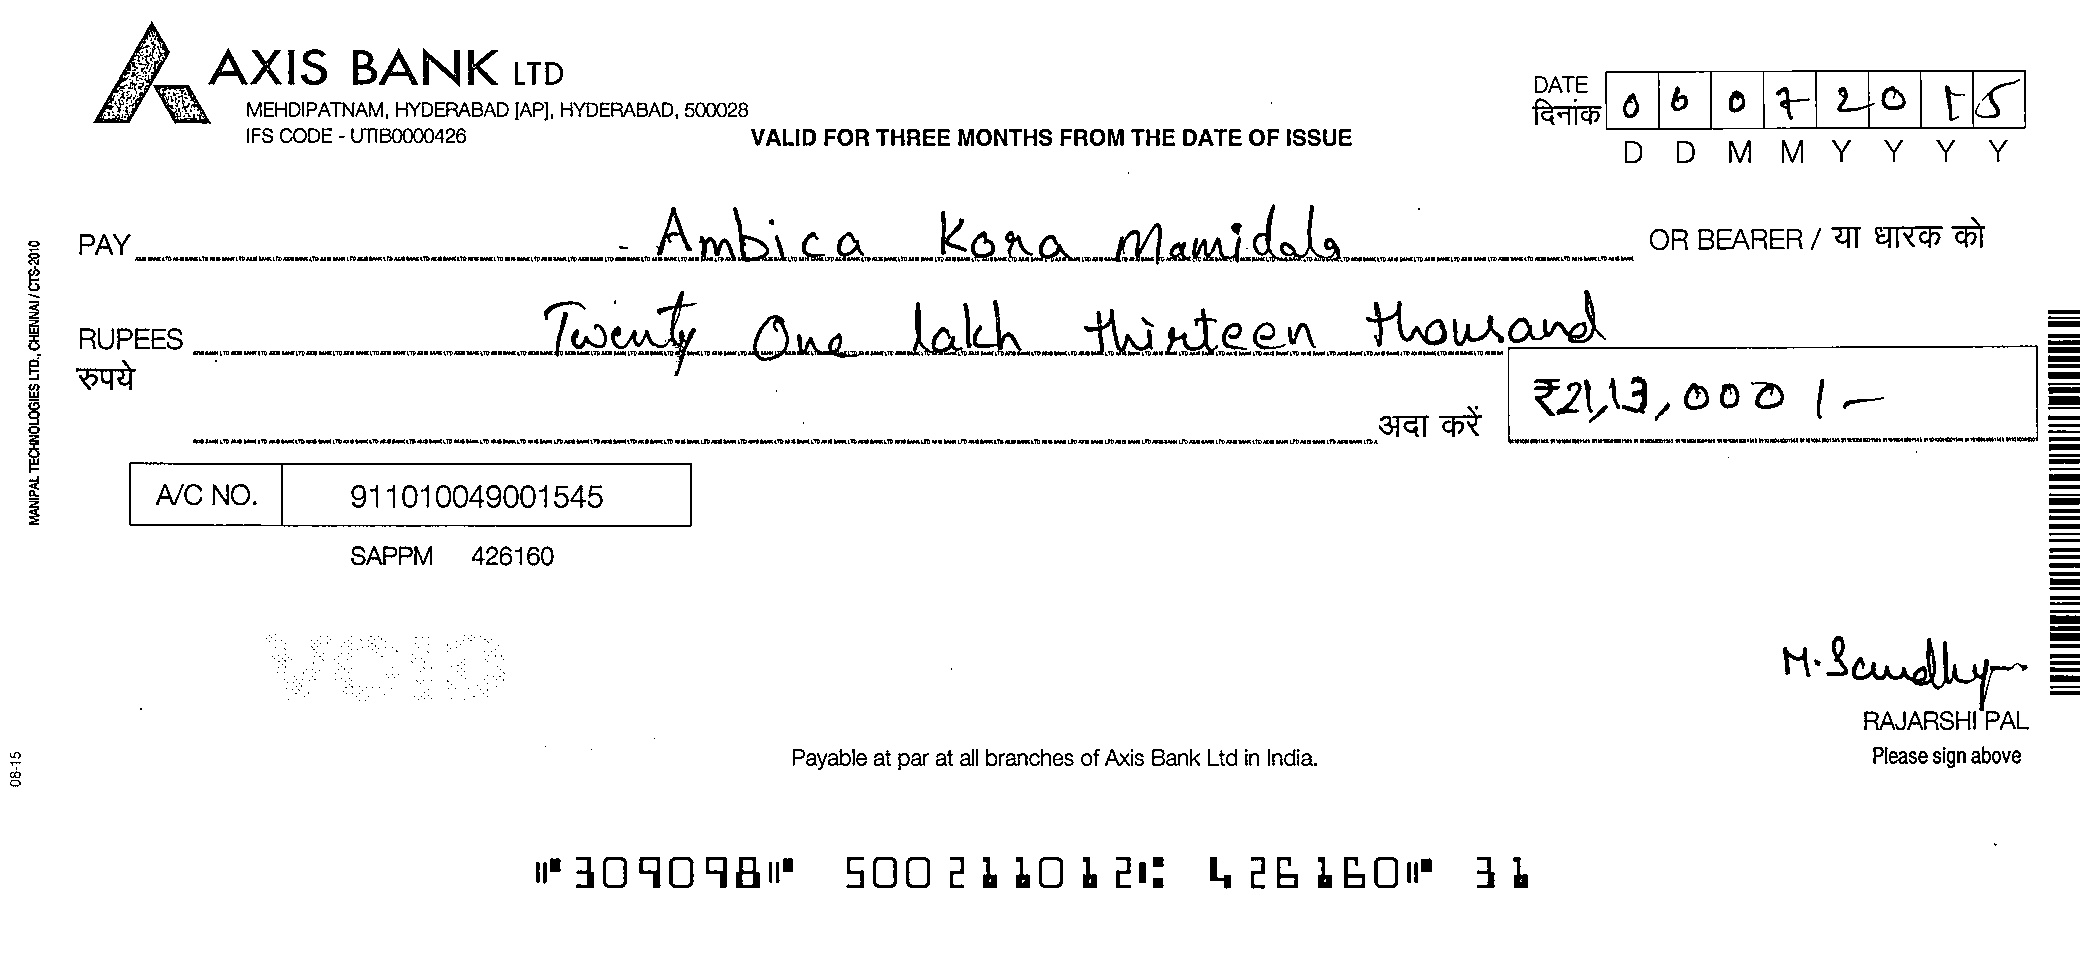 AXIS BANK LTD
MEHDIPATNAM, HYDERABAD [AP], HYDERABAD, 500028
IFS CODE - UTIB0000426
VALID FOR THREE MONTHS FROM THE DATE OF ISSUE
DATE
दिनांक
0 6 0 7 2 0 1 5
D D M M Y Y Y Y
PAY Ambica Kora Mamidala OR BEARER / या धारक को
RUPEES Twenty One lakh thirteen thousand
रुपये
अदा करें ₹21,13,000/-
A/C NO. 911010049001545
SAPPM 426160
VOID
M. Sandhya
RAJARSHI PAL
Please sign above
Payable at par at all branches of Axis Bank Ltd in India.
⑈309098⑈ 500211012⑆ 426160⑈ 31
MANIPAL TECHNOLOGIES LTD., CHENNAI / CTS-2010
08-15